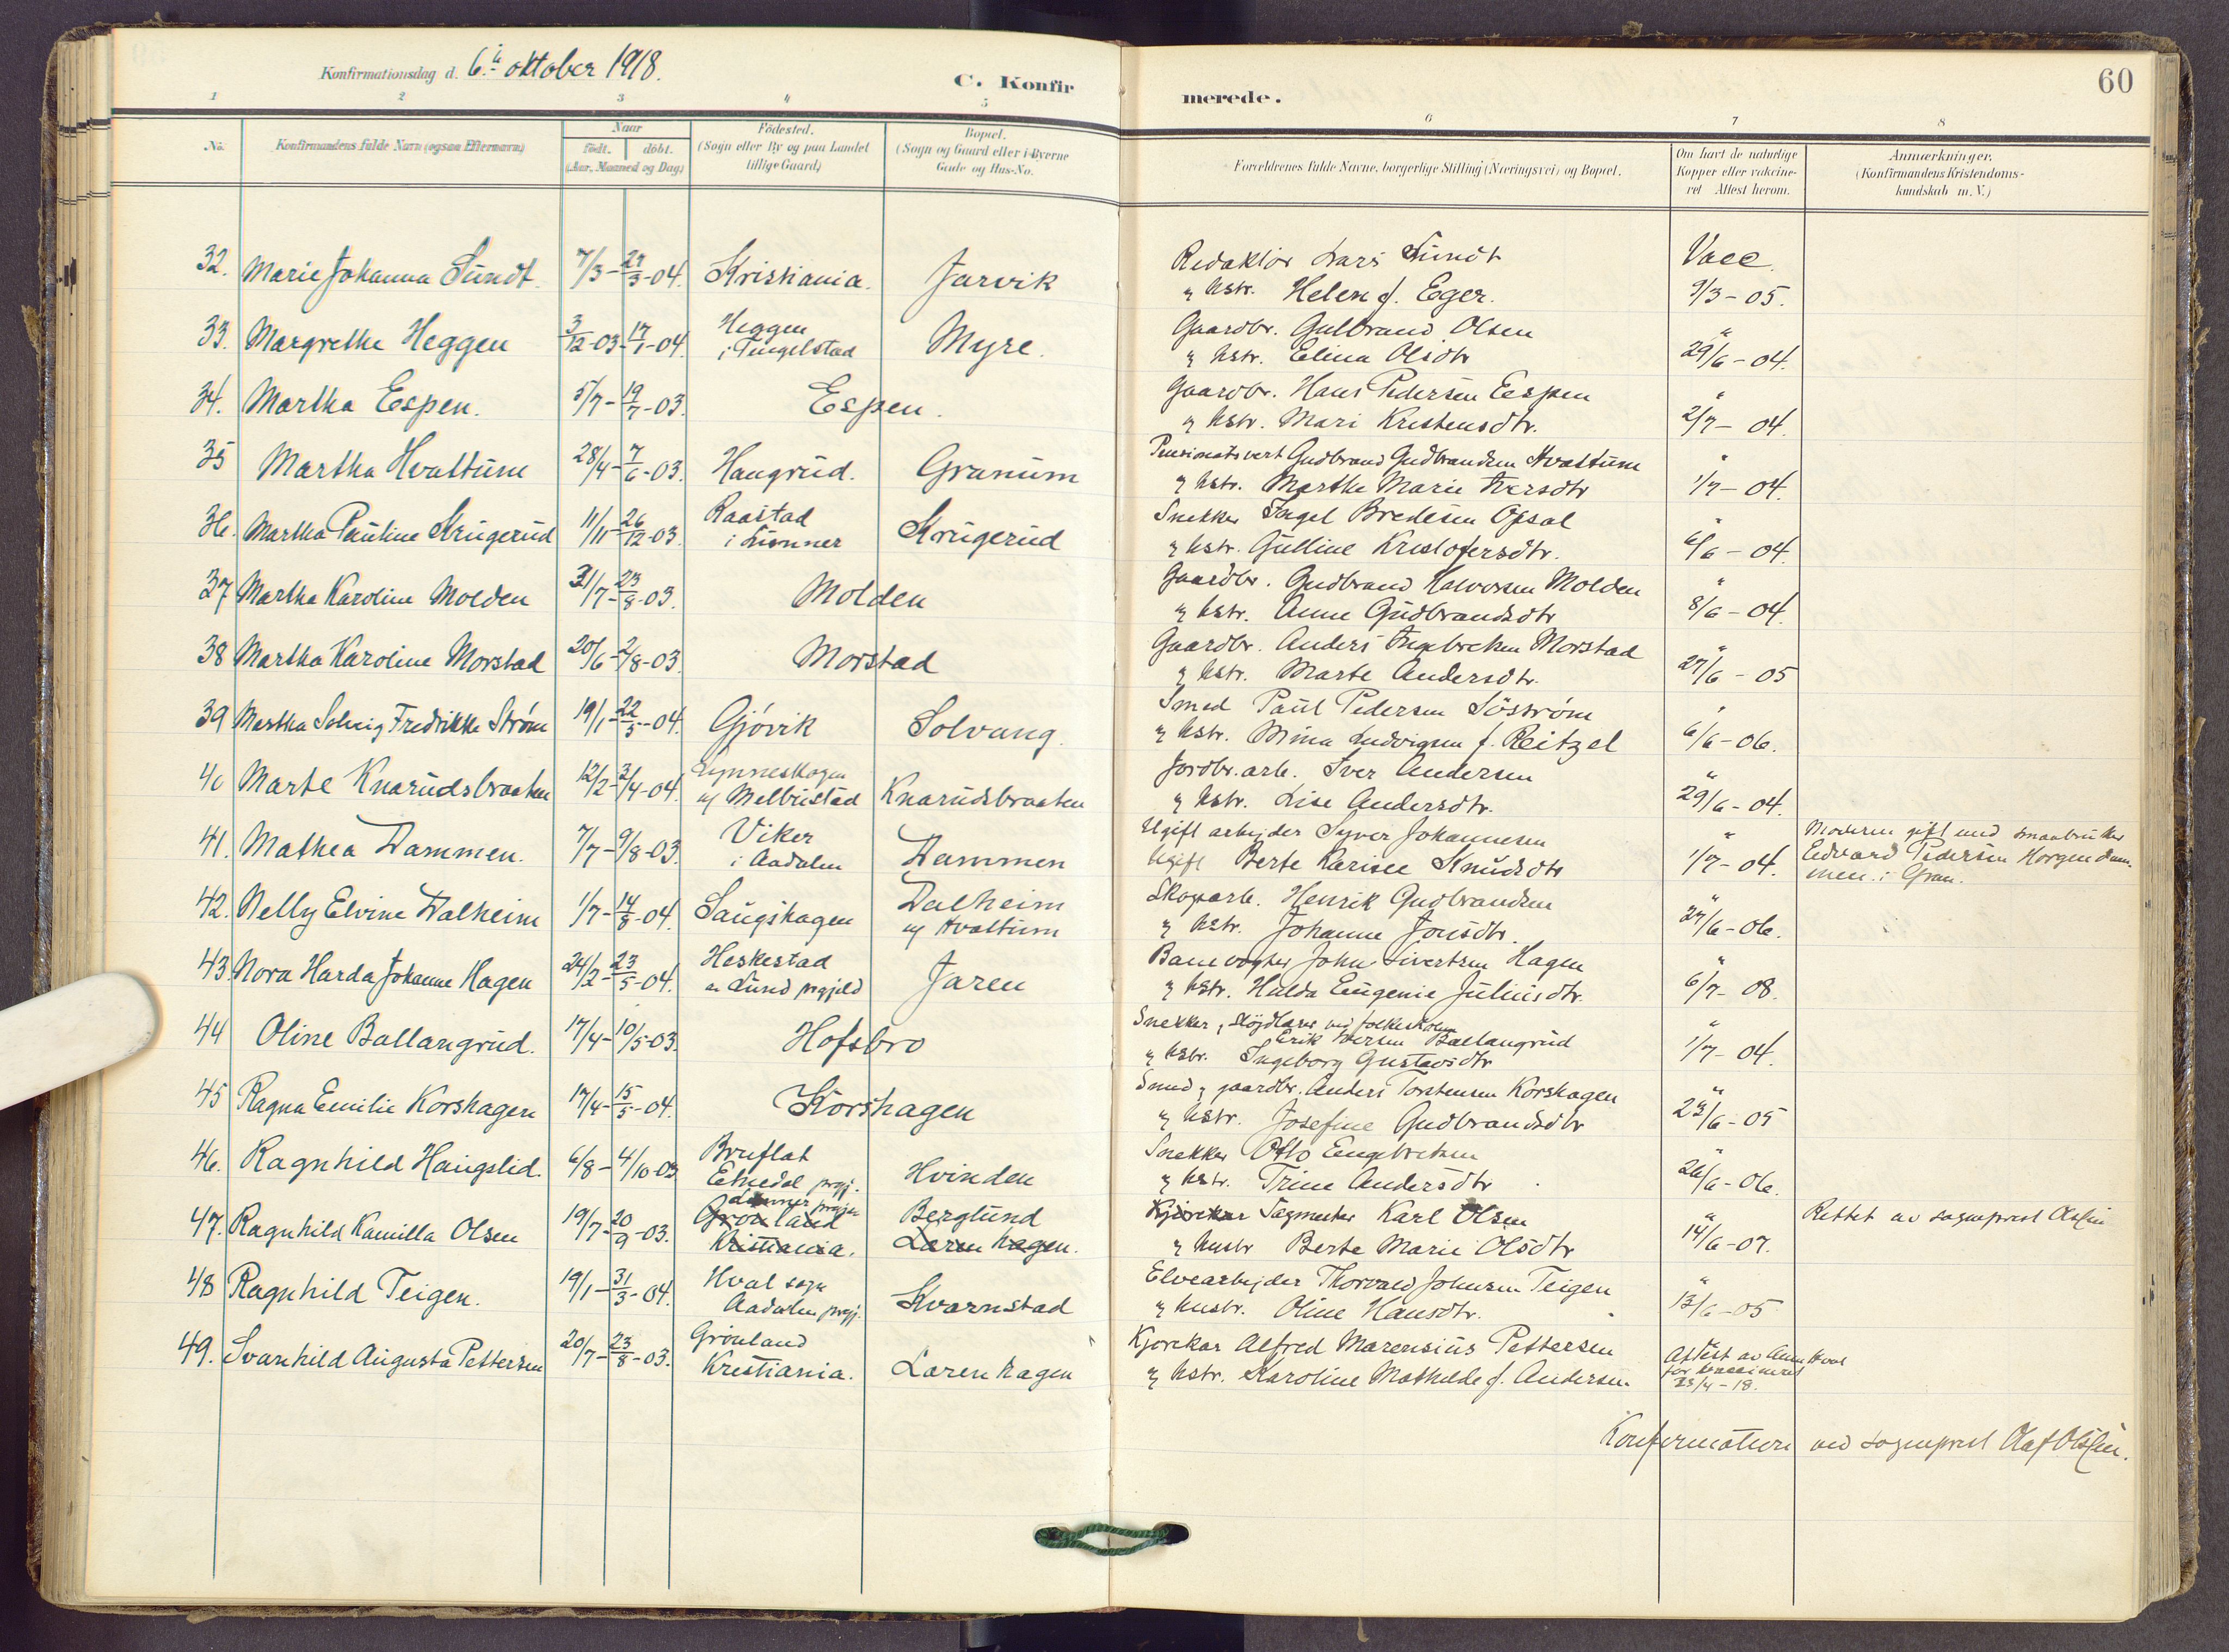 Konfirmationsdag d. 6.te oktober 1918.
C. Konfirmerede.
60
1 2 3 4 5 6 7 8
No.
Konfirmandens fulde Navn (ogsaa Efternavn)
Naar
födt. döbt.
(Aar, Maaned og Dag)
Födested.
(Sogn eller By og paa Landet
tillige Gaard)
Bopæl.
(Sogn og Gaard eller i Byerne
Gade og Hus-No.
Forældrenes fulde Navne, borgerlige Stilling (Næringsvei) og Bopæl.
Om havt de naturlige
Kopper eller vakcine-
ret Attest herom.
Anmærkninger.
(Konfirmandens Kristendoms-
kundskab m. V.)
32. Marie Johanna Sundt. 7/3 - 27/3-04. Kristiania. Jarvik
Redaktör Lars Sundt Vacc.
" hstr. Helen f. Eger. 9/3-05.
33. Margrethe Heggen 3/12-03 17/1-04. Heggen i Tingelstad Myre.
Gaardbr. Gulbrand Olsen "
" hstr. Elina Olsdtr 29/6-04.
34. Martha Espen. 5/7 - 19/7-03. Espen.
Gaardbr. Hans Pedersen Eespen "
" hstr. Mari Kristensdtr. 2/7-04.
35 Martha Hvattum 28/4 - 7/6-03. Haugrud. Granum
Pensionatsvert Gudbrand Gudbrandsen Hvattum "
" hstr. Marthe Marie Iversdtr 1/7-04.
36. Martha Pauline Krugerud 11/11 - 26/12-03. Raastad i Lunner Krugerud
Snekker Engel Bredesen Opsal "
" hstr. Gulline Kristofersdtr. 6/6-04.
37 Martha Karoline Molden 31/7 - 23/8-03. Molden
Gaardbr. Gudbrand Halvorsen Molden "
" hstr. Anne Gudbrandsdtr 8/6-04.
38 Martha Karoline Morstad 20/6 - 2/8-03. Morstad
Gaardbr. Anders Ingebretsen Morstad "
" hstr. Marte Andersdtr. 27/6-05
39 Martha Solveig Fredrikke Strøm 19/1 - 22/5-04. Gjövik Solvang.
Smed Paul Pedersen Söstrøm "
" hstr. Mina Ludvigsen f. Reitzel 6/6-06.
40 Marte Knarudsbraaten 12/2 - 3/4-04. Lynneskogen u/ Melbustad Knarudsbraaten
Jordbr.arb. Iver Andersen "
" hstr. Lise Andersdtr. 29/6-04.
41. Mathea Dammen. 7/7 - 9/8-03. Viker i Aadalen Dammen
Ugift arbejder Syver Johannesen " Moderen gift med smaabruker
Ugift Berte Karisee Knudsdtr 1/7-04. Edvard Pedersen Horgen Dam-
men i Gran.
42. Nelly Elvine Dalheim 1/7 - 14/8-04. Saugshagen Dalheim u/ Hvattum
Skogarb. Henrik Gudbrandsen "
" hstr. Johanne Jonsdtr. 27/6-06.
43. Nora Harda Johanne Hagen 24/2 - 23/5-04. Heskestad av Lund prgjeld Jaren
Banevogter John Sivertsen Hagen "
" hstr. Hulda Eugenie Juliusdtr. 6/7-08.
44 Oline Ballangrud. 17/4 - 10/5-03. Hofsbro
Snekker, slöjdlærer ved folkeskolen
Erik Iversen Ballangrud "
" hstr. Ingeborg Gustavsdtr 1/7-04.
45 Ragna Emilie Korshagen 17/4 - 15/5-04. Korshagen
Smed, gaardbr. Anders Torstensen Korshagen "
" hstr. Josefine Gudbrandsdtr 23/6-05
46. Ragnhild Haugslid. 6/8 - 4/10-03 Bruflat Etnedal prgj. Hvinden
Snekker Otto Engebretsen "
" hstr. Trine Andersdtr 26/6-06.
47. Ragnhild Kamilla Olsen 19/7 - 20/9-03. Lunner prgjeld Grönland Kristiania. Berglund Laren hagen.
Kjörekar Sagmester Karl Olsen " Rettet av sogneprest Olsen
" hustr Berte Marie Olsdtr 14/6-07.
48 Ragnhild Teigen. 19/1 - 31/3-04. Hval sogn Aadalen prgj. Kvarnstad
Elvearbejder Thorvald Johnsen Teigen "
" hustr. Oline Hansdtr. 13/6-05
49. Svanhild Augusta Pettersen 20/7 - 23/8-03. Grönland Kristiania. Laren hagen
Kjörekar Alfred Marensius Pettersen Attest av
" hstr. Karoline Mathilde f. Andersen for vaccineret
23/4-18.
Konfirmation ved sogneprest Olaf Olsen.